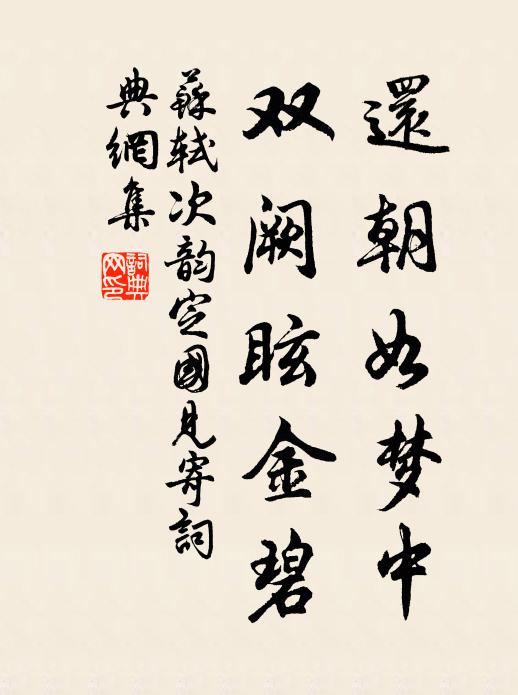 還朝如梦中
双阙眩金碧
蘇軾次韵定國見寄詞
典網集
詞典网印